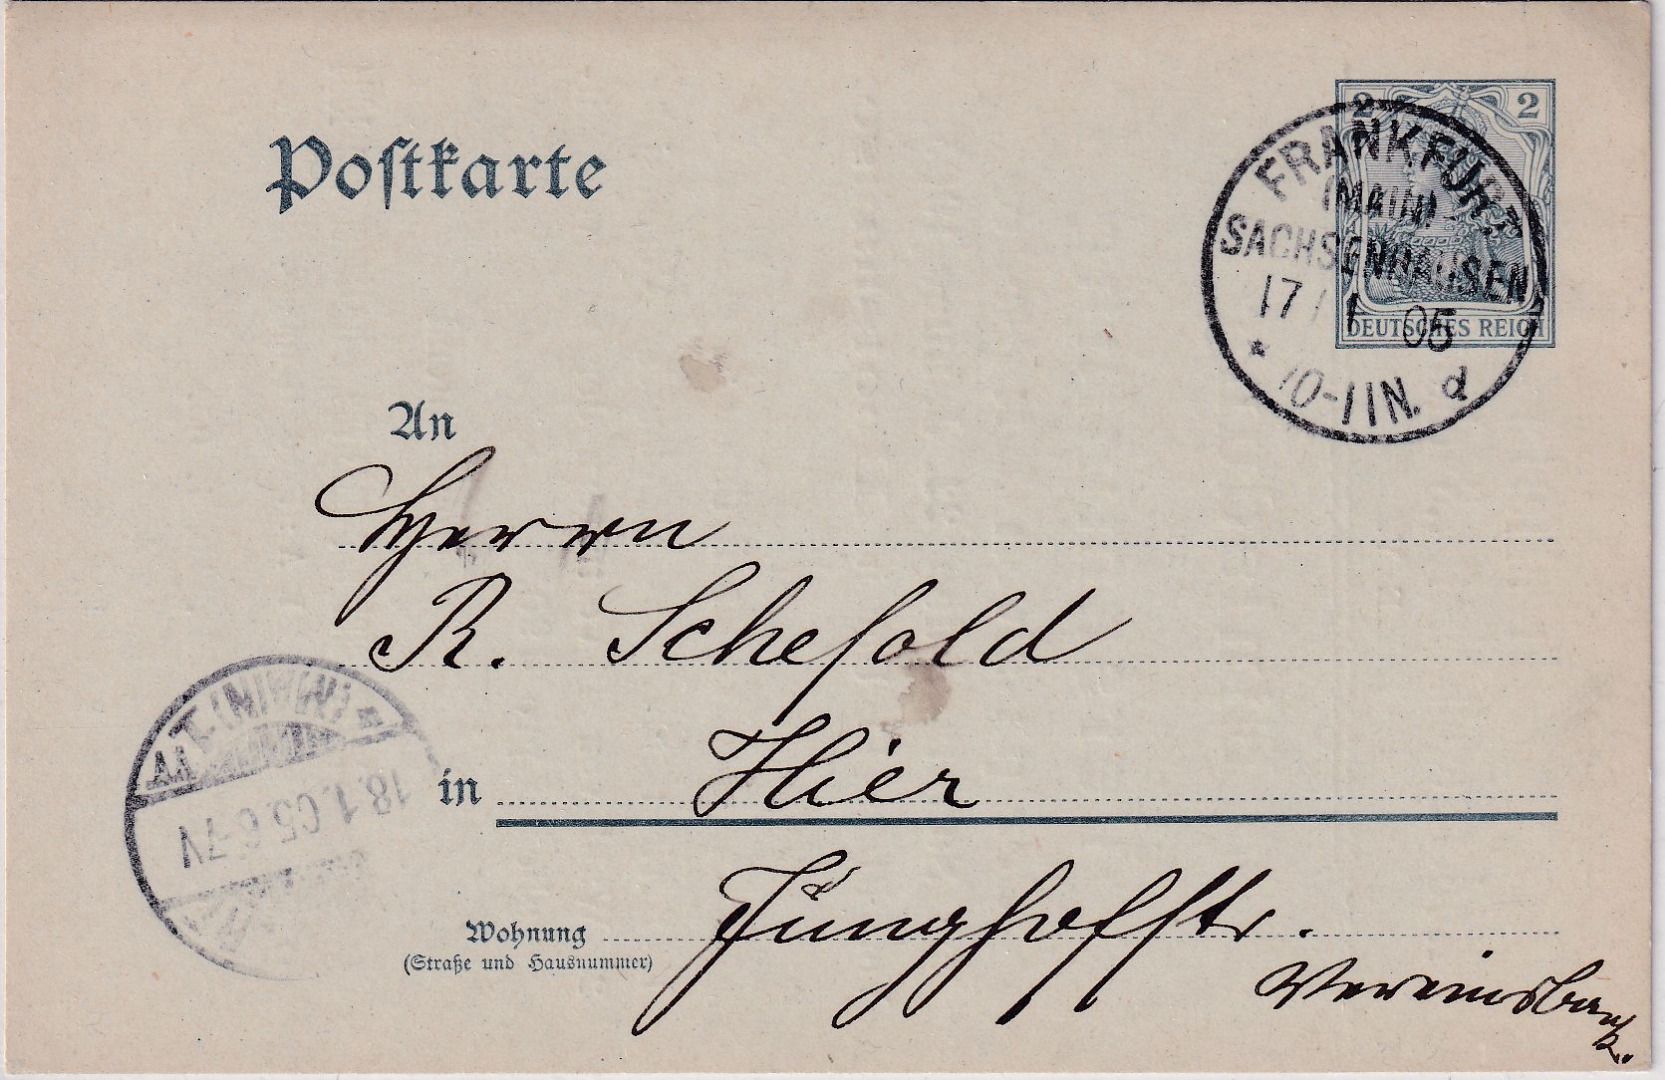 Postkarte
2 2
DEUTSCHES REICH
FRANKFURT
(MAIN)
SACHSENHAUSEN
17 1 05
* 10-11N. d
An
Herrn
R. Schefold
in Hier
Wohnung Junghofstr.
(Straße und Hausnummer)
Vereinsbank.
(MAIN)
18.1.05.6-7V